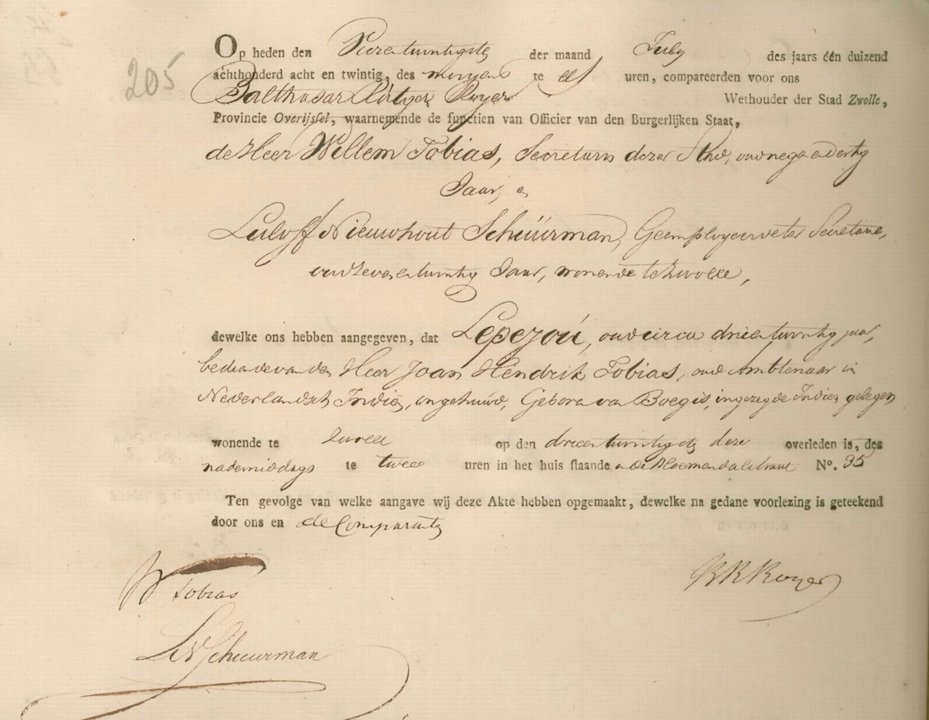 205
Op heden den Vierentwintigste der maand July des jaars één duizend
achthonderd acht en twintig, des morgens te elf uren, compareerden voor ons
Balthasar Royer Wethouder der Stad Zwolle,
Provincie Overijssel, waarnemende de functien van Officier van den Burgerlijken Staat,
de Heer Willem Tobias, Secretaris dezer Stad, oud negenendertig
Jaar, en
Luloff Nieuwhout Schüürman, Geemployeerde ter Secretarie,
oud zevenentwintig Jaar, wonende te Zwolle,
dewelke ons hebben aangegeven, dat Lepejoú, oud circa drieentwintig jaar,
bediende van den Heer Joan Hendrik Tobias, oud Ambtenaar in
Nederlandsch Indie, ongehuwd, Geboren van Boegis, in gezegde Indien gelegen
wonende te Zwolle op den drieentwintigste dezer overleden is, des
nademiddags te twee uren in het huis staande in de Bloemendalstraat N°. 95
Ten gevolge van welke aangave wij deze Akte hebben opgemaakt, dewelke na gedane voorlezing is geteekend
door ons en de Comparanten
W Tobias
BRRoyer
LNSchuurman